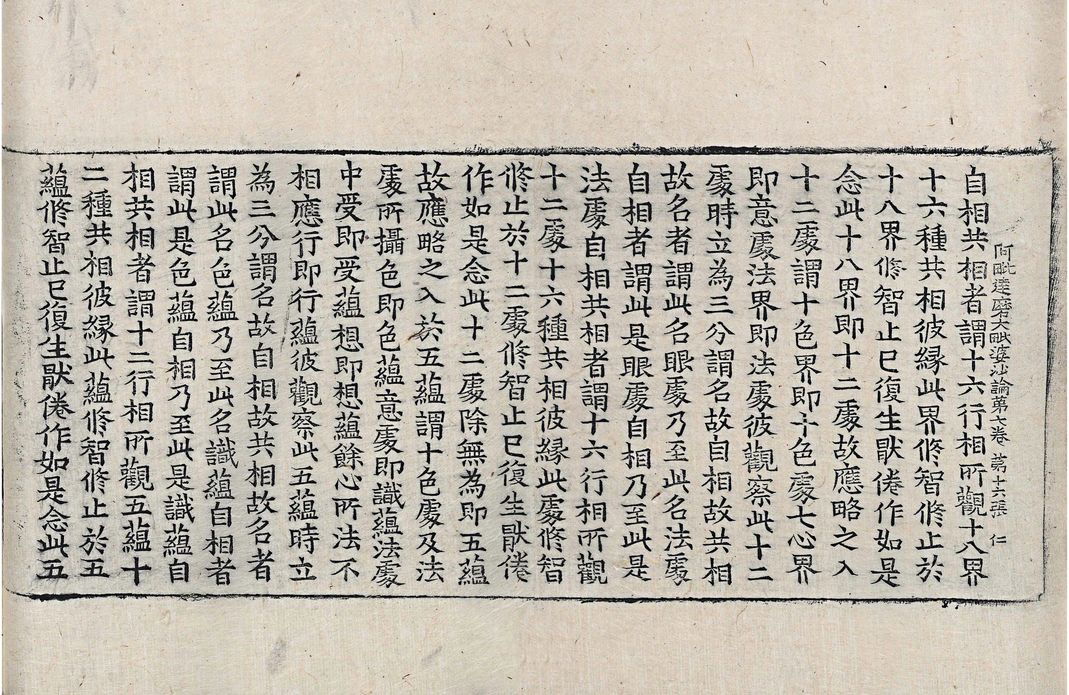 阿毗達磨大毗婆沙論第七卷 第十六張 仁
自相共相者謂十六行相所觀十八界
十六種共相彼緣此界修智修止於
十八界修智止已復生猒倦作如是
念此十八界即十二處故應略之入
十二處謂十色界即十色處七心界
即意處法界即法處彼觀察此十二
處時立為三分謂名故自相故共相
故名者謂此名眼處乃至此名法處
自相者謂此是眼處自相乃至此是
法處自相共相者謂十六行相所觀
十二處十六種共相彼緣此處修智
修止於十二處修智止已復生猒倦
作如是念此十二處除無為即五蘊
故應略之入於五蘊謂十色處及法
處所攝色即色蘊意處即識蘊法處
中受即受蘊想即想蘊餘心所法不
相應行即行蘊彼觀察此五蘊時立
為三分謂名故自相故共相故名者
謂此名色蘊乃至此名識蘊自相者
謂此是色蘊自相乃至此是識蘊自
相共相者謂十二行相所觀五蘊十
二種共相彼緣此蘊修智修止於五
蘊修智止已復生猒倦作如是念此五